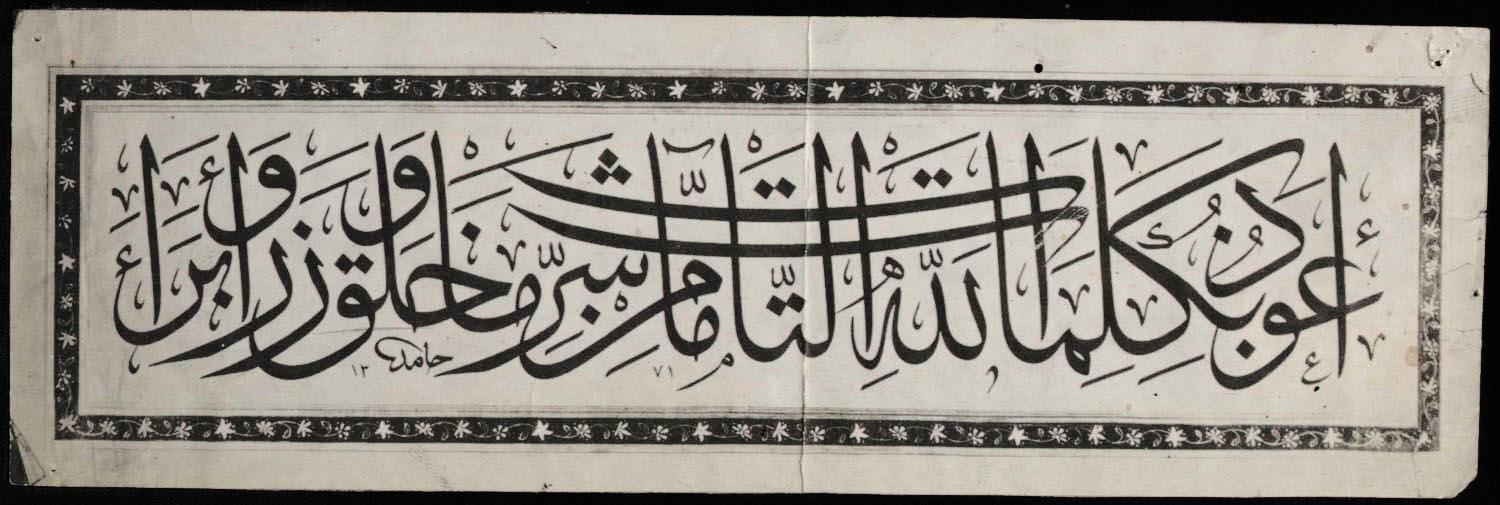 أعوذ بكلمات الله التامات من شر ما خلق وذرأ وبرأ
حامد
١٣٧١